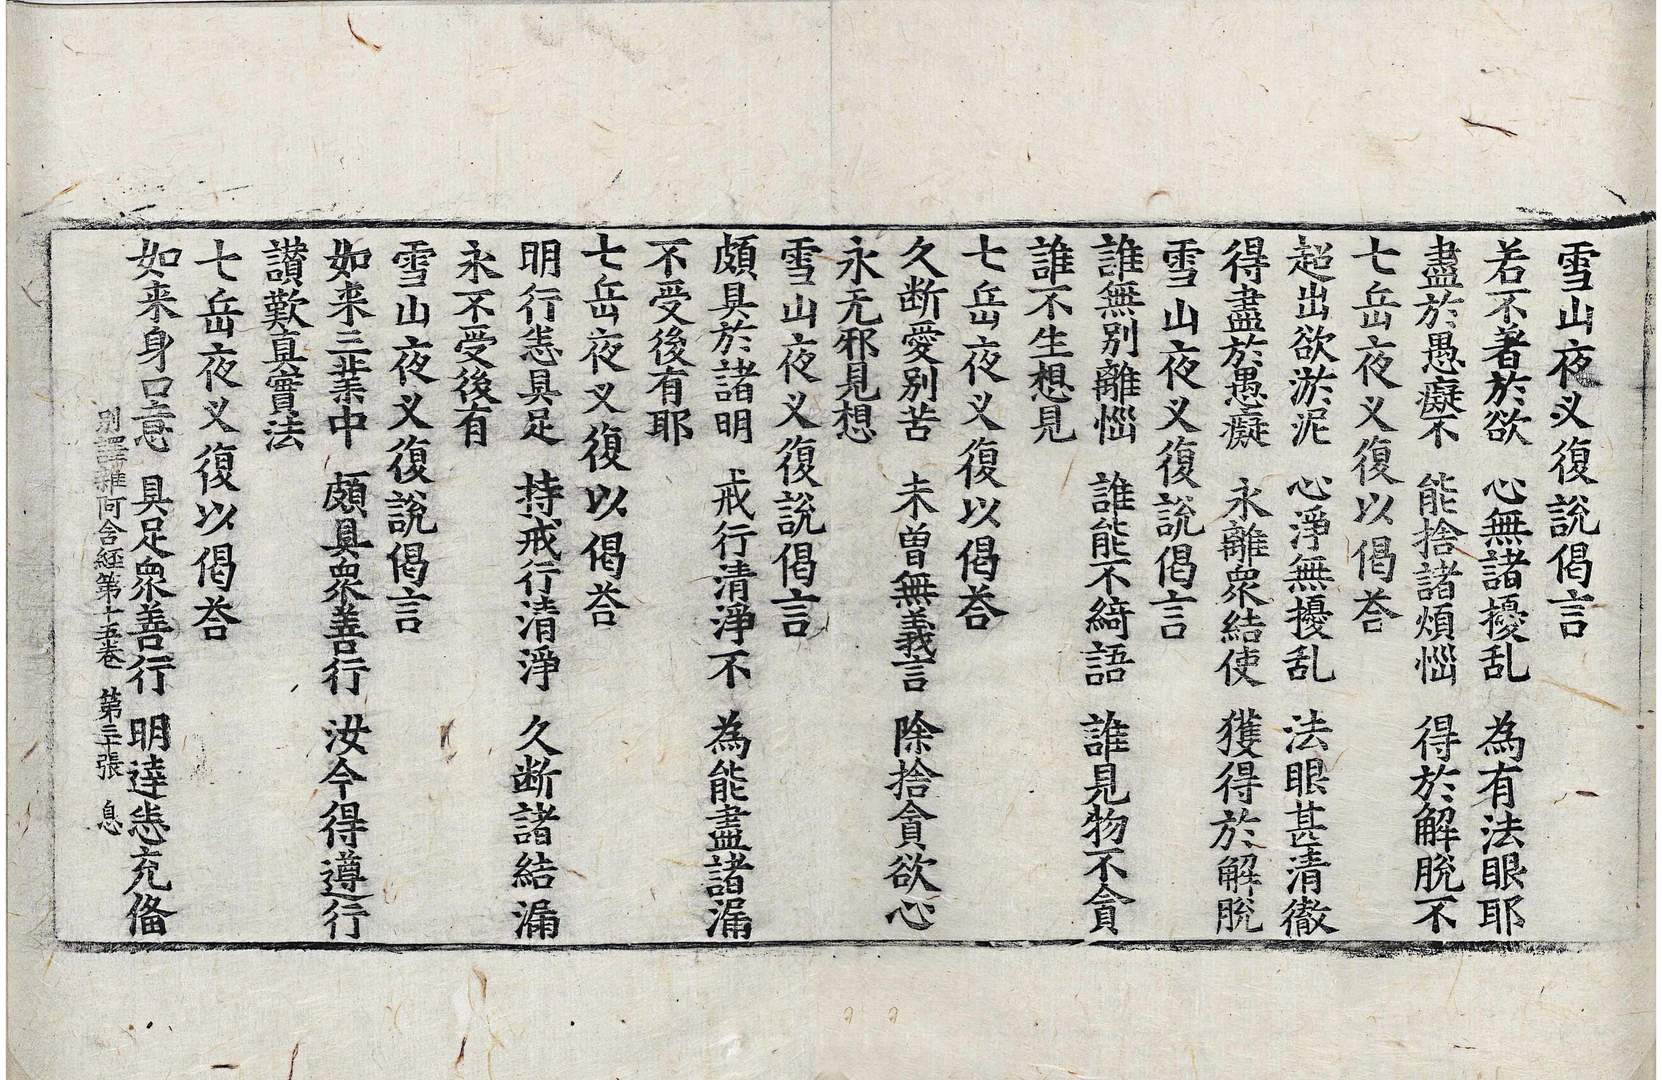 雪山夜叉復說偈言
若不著於欲　心無諸擾乱　為有法眼耶
盡於愚癡不　能捨諸煩惱　得於解脫不
七岳夜叉復以偈荅
超出欲淤泥　心淨無擾乱　法眼甚清徹
得盡於愚癡　永離衆結使　獲得於解脫
雪山夜叉復說偈言
誰無別離惱　誰能不綺語　誰見物不貪
誰不生想見
七岳夜叉復以偈荅
久断愛別苦　未曾無義言　除捨貪欲心
永无邪見想
雪山夜叉復說偈言
頗具於諸明　戒行清淨不　為能盡諸漏
不受後有耶
七岳夜叉復以偈荅
明行悉具足　持戒行清淨　久断諸結漏
永不受後有
雪山夜叉復說偈言
如来三業中　頗具衆善行　汝今得遵行
讃歎真實法
七岳夜叉復以偈荅
如来身口意　具足衆善行　明逹悉充俻
別譯雜阿含經第十五卷　第三張　息